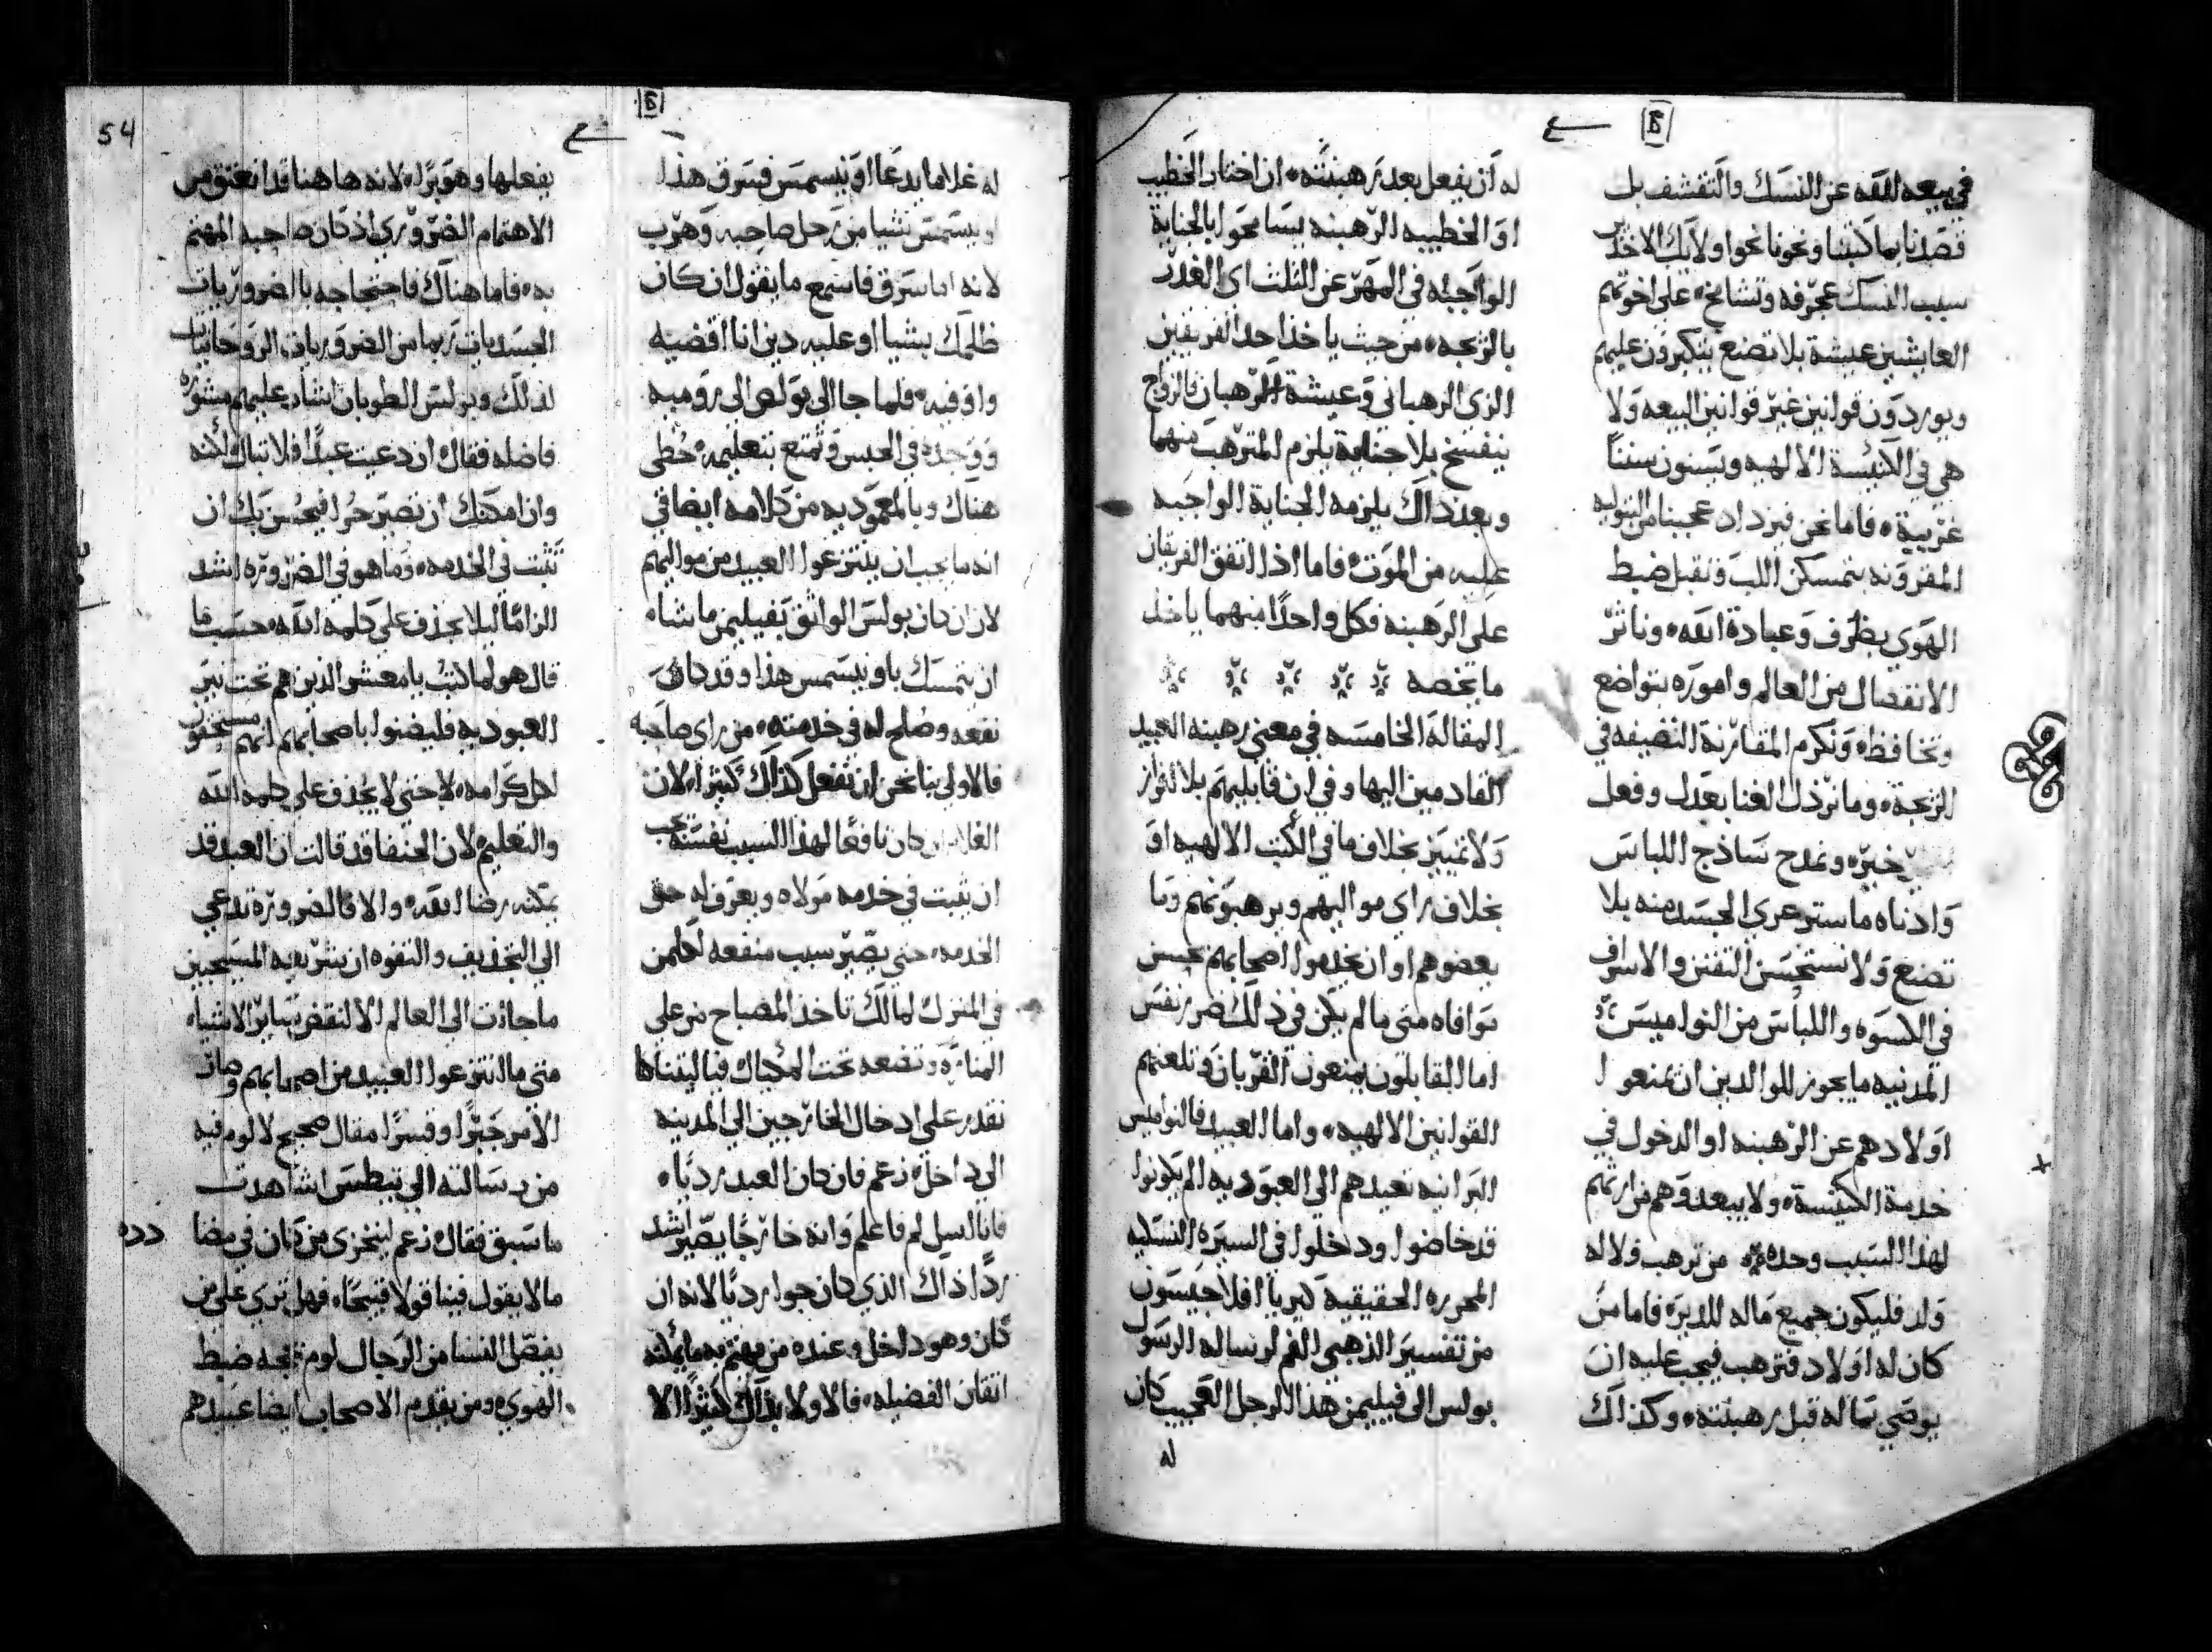 في بيعه الله عن النسك والتقشف بل
قصدنا بما كتبنا ونحونا نحوا ولايك الاخذين
سبب النسك عجرفه وتشامخ علي اخوتهم
العايشين عيشة بلا تصنع يتكبرون عليهم
ويوردون قوانين غير قوانين البيعه ولا
هي في الكنيسة الالهيه ويسنون سننا
غريبة فاما نحن فيزداد عجبنا من البتوليه
المقرونه بتمسكن اللب ونقبل ضبط
الهوي بظرف وعبادة الله وناثر
الانفصال من العالم واموره بتواضع
وتحافظ ونكرم المقارنة النضيفه في
الزيجة وما نرذل الغنا بعدل وفعل
خيره ونمدح ساذج اللباس
وادناه ما ستر عري الجسد منه بلا
تصنع ولا نستحسن التفنن والاسراف
في الكسوه واللباس من النواميس
المدنيه ما يجوز للوالدين ان يمنعوا
اولادهم عن الرهبنه او الدخول في
خدمة الكنيسة ولا يبعدوهم من ارثهم
لهذا السبب وحده من ترهب ولا له
ولد فليكون جميع ماله للديره فاما من
كان له اولاد فترهب فيجب عليه ان
يوصي بماله قبل رهبنته وكذلك
له ان يفعل بعد رهبنته ان اختار الخطيب
او الخطيبه الرهبنه يسامحوا بالجناية
الواجبه في المهر عن الثلث اي الغدر
بالزيجه من حيث ياخذ احد الفريقين
الزي الرهباني وعيشة الرهبان فالزواج
ينفسخ بلا جناية يلزم المترهب منهما
وبعد ذاك يلزمه الجناية الواجبه
عليه من الموت فاما اذا اتفق الفريقان
علي الرهبنه فكل واحدا منهما ياخذ
ما يخصه
المقالة الخامسه في معني رهبنه العبيد
القادمين اليها وفي ان قابليهم بلا افراز
ولا تمييز بخلاف ما في الكتب الالهيه او
بخلاف راي مواليهم ويرهبونهم وما
يعضوهم او ان يخدموا اصحابهم بحسن
موافاه متي ما لم يكن في ذلك ضرر نفس
اما القابلون يمنعون القربان وتلعنهم
القوانين الالهيه واما العبيد فالنواميس
البرانيه تعيدهم الي العبوديه الم يكونوا
قد خاضوا ودخلوا في السيره النسكيه
المحرره الحقيقيه
من تفسير الذهبي الفم لرسالة الرسول
بولس الي فيليمن هذا الرجل العجيب كان
له
54
له غلاما يدعا اونيسمس فسرق هذا
اونيسمس شيا من رحل صاحبه وهرب
لانه اما سرق فاسمع ما يقول ان كان
ظلمك بشيا او عليه دين انا اقضيه
واوفيه فلما جا الي بولص الي روميه
ووجده في الحبس وتمتع بتعليمه حظي
هناك وبالمعموديه من كلامه ايضا في
انه ما يجب ان ينتزعوا العبيد من مواليهم
لان ان كان بولس الواثق بفيليمن ما شاء
ان يتمسك باونيسمس هذا وقد كان
نفعه وصلح له في خدمته من راي صاحبه
فالاولي بنا نحن ان نفعل كذلك كثيرا لان
الغلام ان كان نافعا لهذا السبب نفسه يجب
ان يثبت في خدمه مولاه ويعرف له حق
الخدمه حتي يصير سبب منفعه لكلمن
في المنزل لما لك تاخذ المصباح من علي
المناره وتضعه تحت المكيال فيا ليتنا
نقدر علي ادخال الخارجين الي المدينه
الي داخل زعم فان كان العبد رديا
فانا اسلم فاعلم وانه خارجا يصير اشد
ردا ذاك الذي كان جوا رديا لانه ان
كان وهو داخل وعنده من يهتم به ما يمكنه
اتقان الفضيله فالاولا بذلك كثيرا الا
يفعلها وهو برا لانه هاهنا قد انعتق من
الاهتمام الضروري اذ كان صاحبه المهتم
به فاما هناك فاحتجاجه بالضروريات
الجسديات ربما من الضروريات الروحانيات
لذلك وبولس الطوبان اشار عليهم مشوره
فاضله فقال ان دعيت عبدا فلا تبال لانه
وان امكنك ان تصير حرا فيحسن بك ان
تثبت في الخدمه وما هو في الضروره اشد
الزاما ليلا يجذف علي كلمه الله حسب ما
قال هو لما كتب يا معشر الذين هم تحت نير
العبوديه فليظنوا باصحابهم انهم مستحقون
لكل كرامه لا حتي لا يجذف علي كلمه الله
والتعليم لان الحنفا قد قالت ان العبد قد
يمكنه رضا الله والا فالضروره تدعي
الي التجديف والتفوه ان شريعه المسيحيين
ما جاءت الي العالم الا لنقض ساير الاشياء
متي ما انتزعوا العبيد من اصحابهم وصار
الامر جبرا وقسرا مقال صحيح لا لوم فيه
من رسالته الي تيطس اشاهدت
ما سبق فقال زعم ليتخزي من كان في مضا
ما لا يقول فينا قولا قبيحا فهل تري علي من
يفصل النسا من الرجال لوم بحجه ضبط
الهوي ومن يقدم الاصحاب ايضا عبيدهم